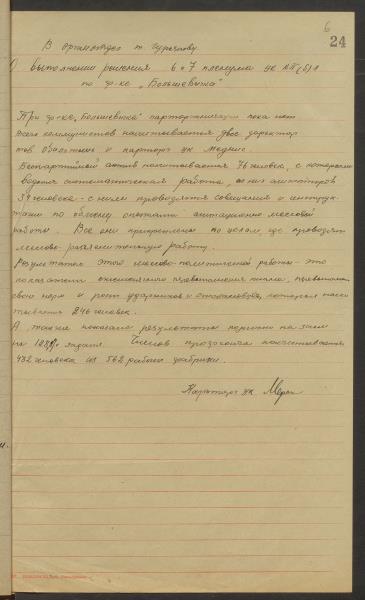 6
24
В орготдел т. Сурочкову
О выполнении решения 6 и 7 пленума ЦК КП(б)
по ф-ке „Большевичка"
При ф-ке „Большевичка" парторганизации пока нет
Всего коммунистов насчитывается двое директор
и парторг ЦК
Беспартийный актив насчитывается 76 человек, с которыми
ведется систематическая работа, из них агитаторов
39 человека - с ними проводятся совещания и инструк-
тажи по обмену опытами агитационно массовой
работы. Все они прикреплены по цехам, где проводят
массово-разъяснительную работу.
Результатом этой массово-политической работы - это
показатели ежемесячного перевыполнения плана, перевыполнен
свои норм и рост ударников и стахановцев, которых насчи
тывается 246 человек.
А также показали результаты подписки на заем
на задания. Членов профсоюза насчитывается
432 человека из 562 рабочих фабрики.
Парторг ЦК